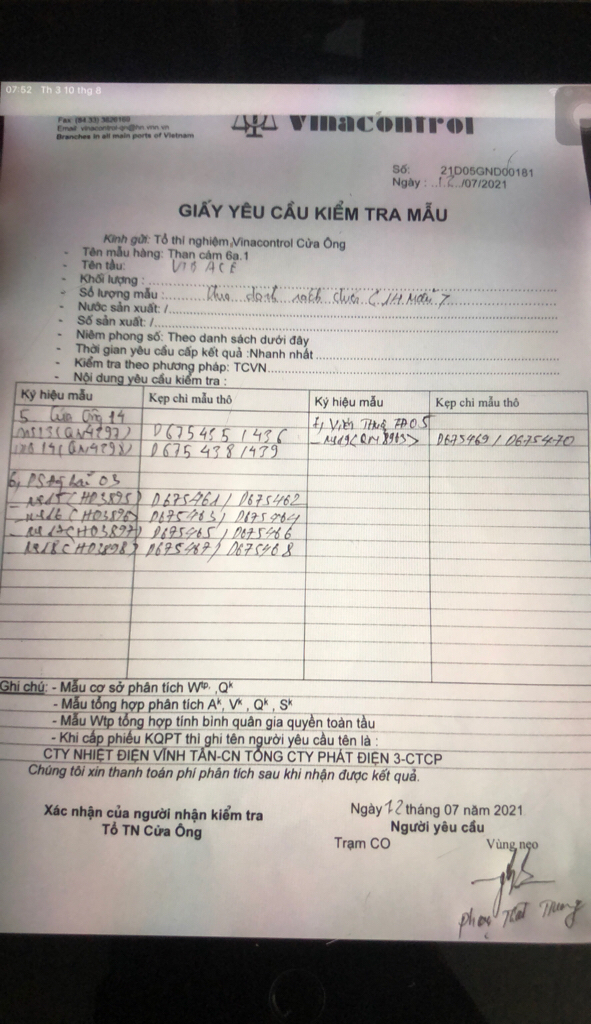 07:52 Th 3 10 thg 8
Fax: (84.33)
Email: vinacontrol-qn@hn.vnn.vn
Branches in all main ports of Vietnam
vinacontrol
Số: 21D05GND00181
Ngày : 12/07/2021
GIẤY YÊU CẦU KIỂM TRA MẪU
Kính gửi: Tổ thí nghiệm,Vinacontrol Cửa Ông
- Tên mẫu hàng: Than cám 6a.1
- Tên tầu: VTB ACE
- Khối lượng :
- Số lượng mẫu : danh sách dưới
- Nước sản xuất: /
- Số sản xuất: /
- Niêm phong số: Theo danh sách dưới đây
- Thời gian yêu cầu cấp kết quả :Nhanh nhất
- Kiểm tra theo phương pháp: TCVN
- Nội dung yêu cầu kiểm tra :
Ký hiệu mẫu Kẹp chì mẫu thô Ký hiệu mẫu Kẹp chì mẫu thô
5. Cửa Ông 14
(QN4397) D675435/436
D675438/439
7, Việt Thuận
- M19 D675469/D675470
03
- M15(HD3895) D675461/D675462
- M16(HD3896) D675463/D675464
- M17(HD3897) D675465/D675466
- M18(HD3898) D675467/D675468
Ghi chú: - Mẫu cơ sở phân tích Wtp, ,Qk
- Mẫu tổng hợp phân tích Ak, Vk , Qk , Sk
- Mẫu Wtp tổng hợp tính bình quân gia quyền toàn tầu
- Khi cấp phiếu KQPT thì ghi tên người yêu cầu tên là :
CTY NHIỆT ĐIỆN VĨNH TÂN-CN TỔNG CTY PHÁT ĐIỆN 3-CTCP
Chúng tôi xin thanh toán phí phân tích sau khi nhận được kết quả.
Xác nhận của người nhận kiểm tra
Tổ TN Cửa Ông
Ngày 12 tháng 07 năm 2021
Người yêu cầu
Trạm CO Vùng neo